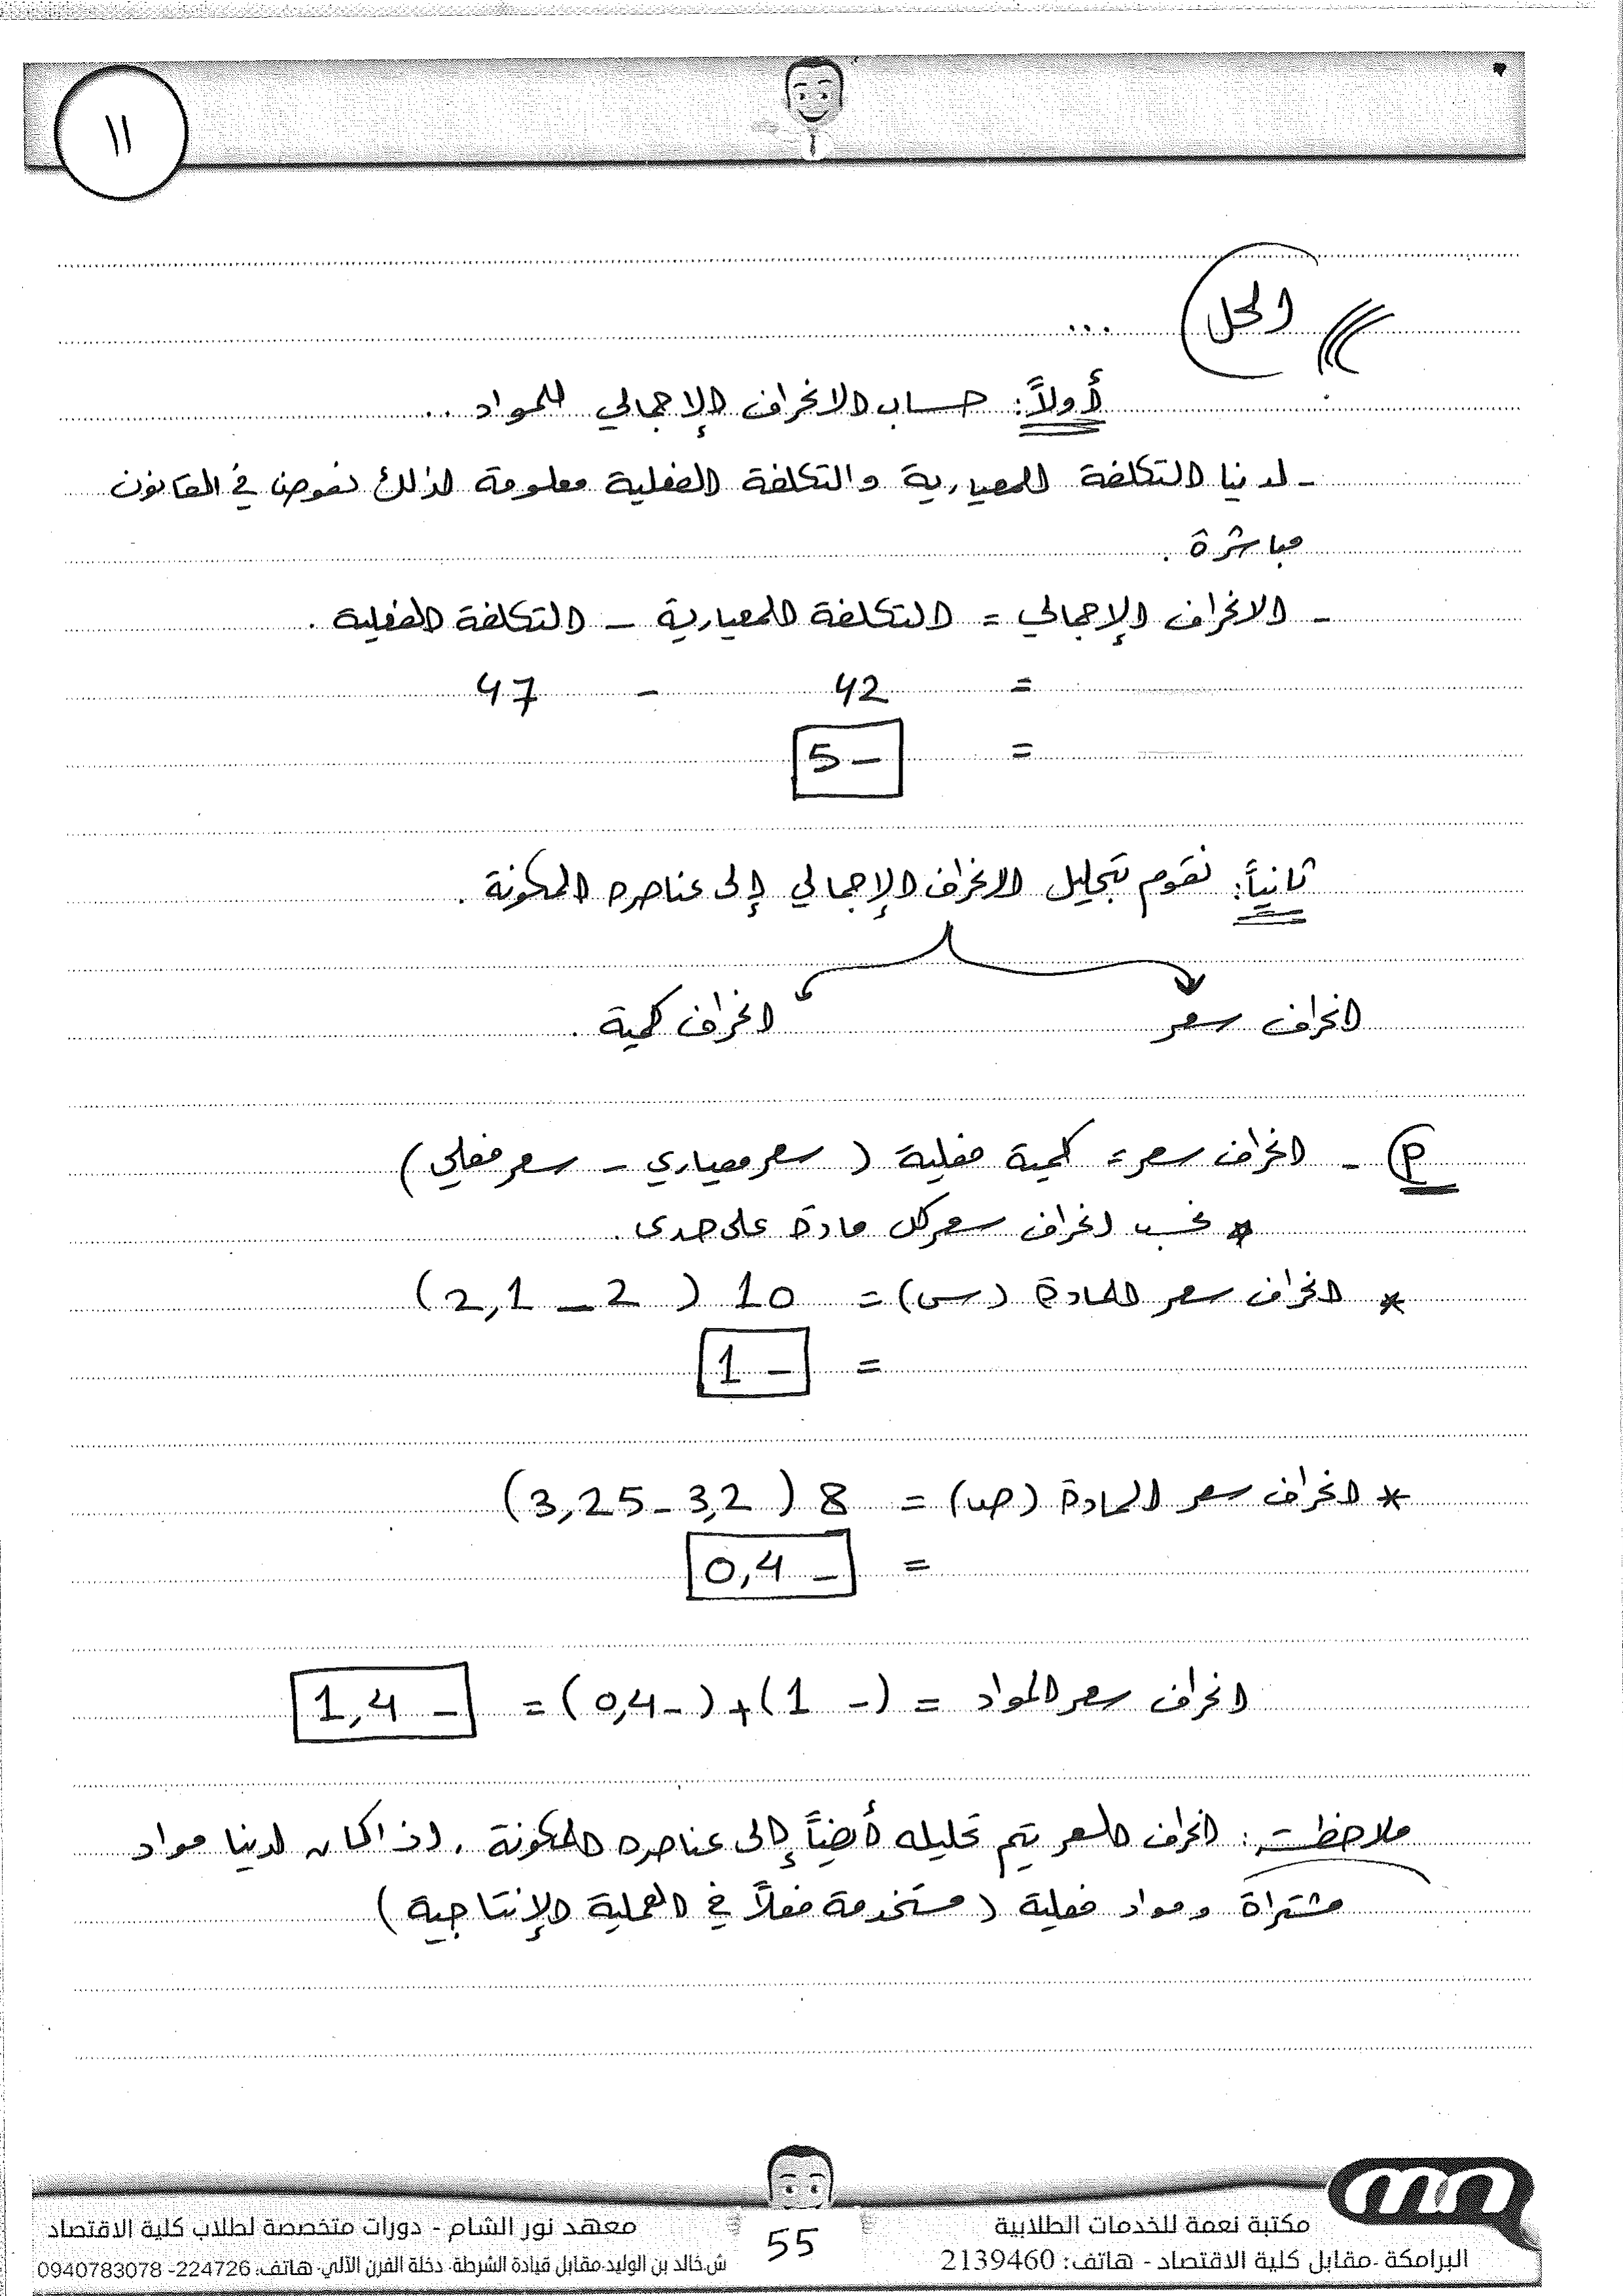 ١١
الحل ...
أولاً: حساب الانحراف الإجمالي للمواد ..
- لدينا التكلفة المعيارية والتكلفة الفعلية معلومة لذلك نعوض في القانون
مباشرة .
- الانحراف الإجمالي = التكلفة المعيارية - التكلفة الفعلية .
= 42 - 47
= - 5
ثانياً: نقوم بتحليل الانحراف الإجمالي إلى عناصره المكونة .
انحراف سعر انحراف كمية .
م - انحراف سعر = كمية فعلية ( سعر معياري - سعر فعلي )
* نحسب انحراف سعر كل مادة على حدى .
* انحراف سعر المادة (س) = 10 ( 2 - 2,1 )
= - 1
* انحراف سعر المادة (ص) = 8 ( 3,2 - 3,25 )
= - 0,4
انحراف سعر المواد = (- 1) + (- 0,4) = - 1,4
ملاحظة : انحراف السعر يتم تحليله أيضاً إلى عناصره المكونة . اذا كان لدينا مواد
مشتراة ومواد فعلية ( مستخدمة فعلاً في العملية الإنتاجية )
مكتبة نعمة للخدمات الطلابية
البرامكة -مقابل كلية الاقتصاد - هاتف: 2139460
55
معهد نور الشام - دورات متخصصة لطلاب كلية الاقتصاد
ش.خالد بن الوليد-مقابل قيادة الشرطة- دخلة الفرن الآلي- هاتف: 224726- 0940783078